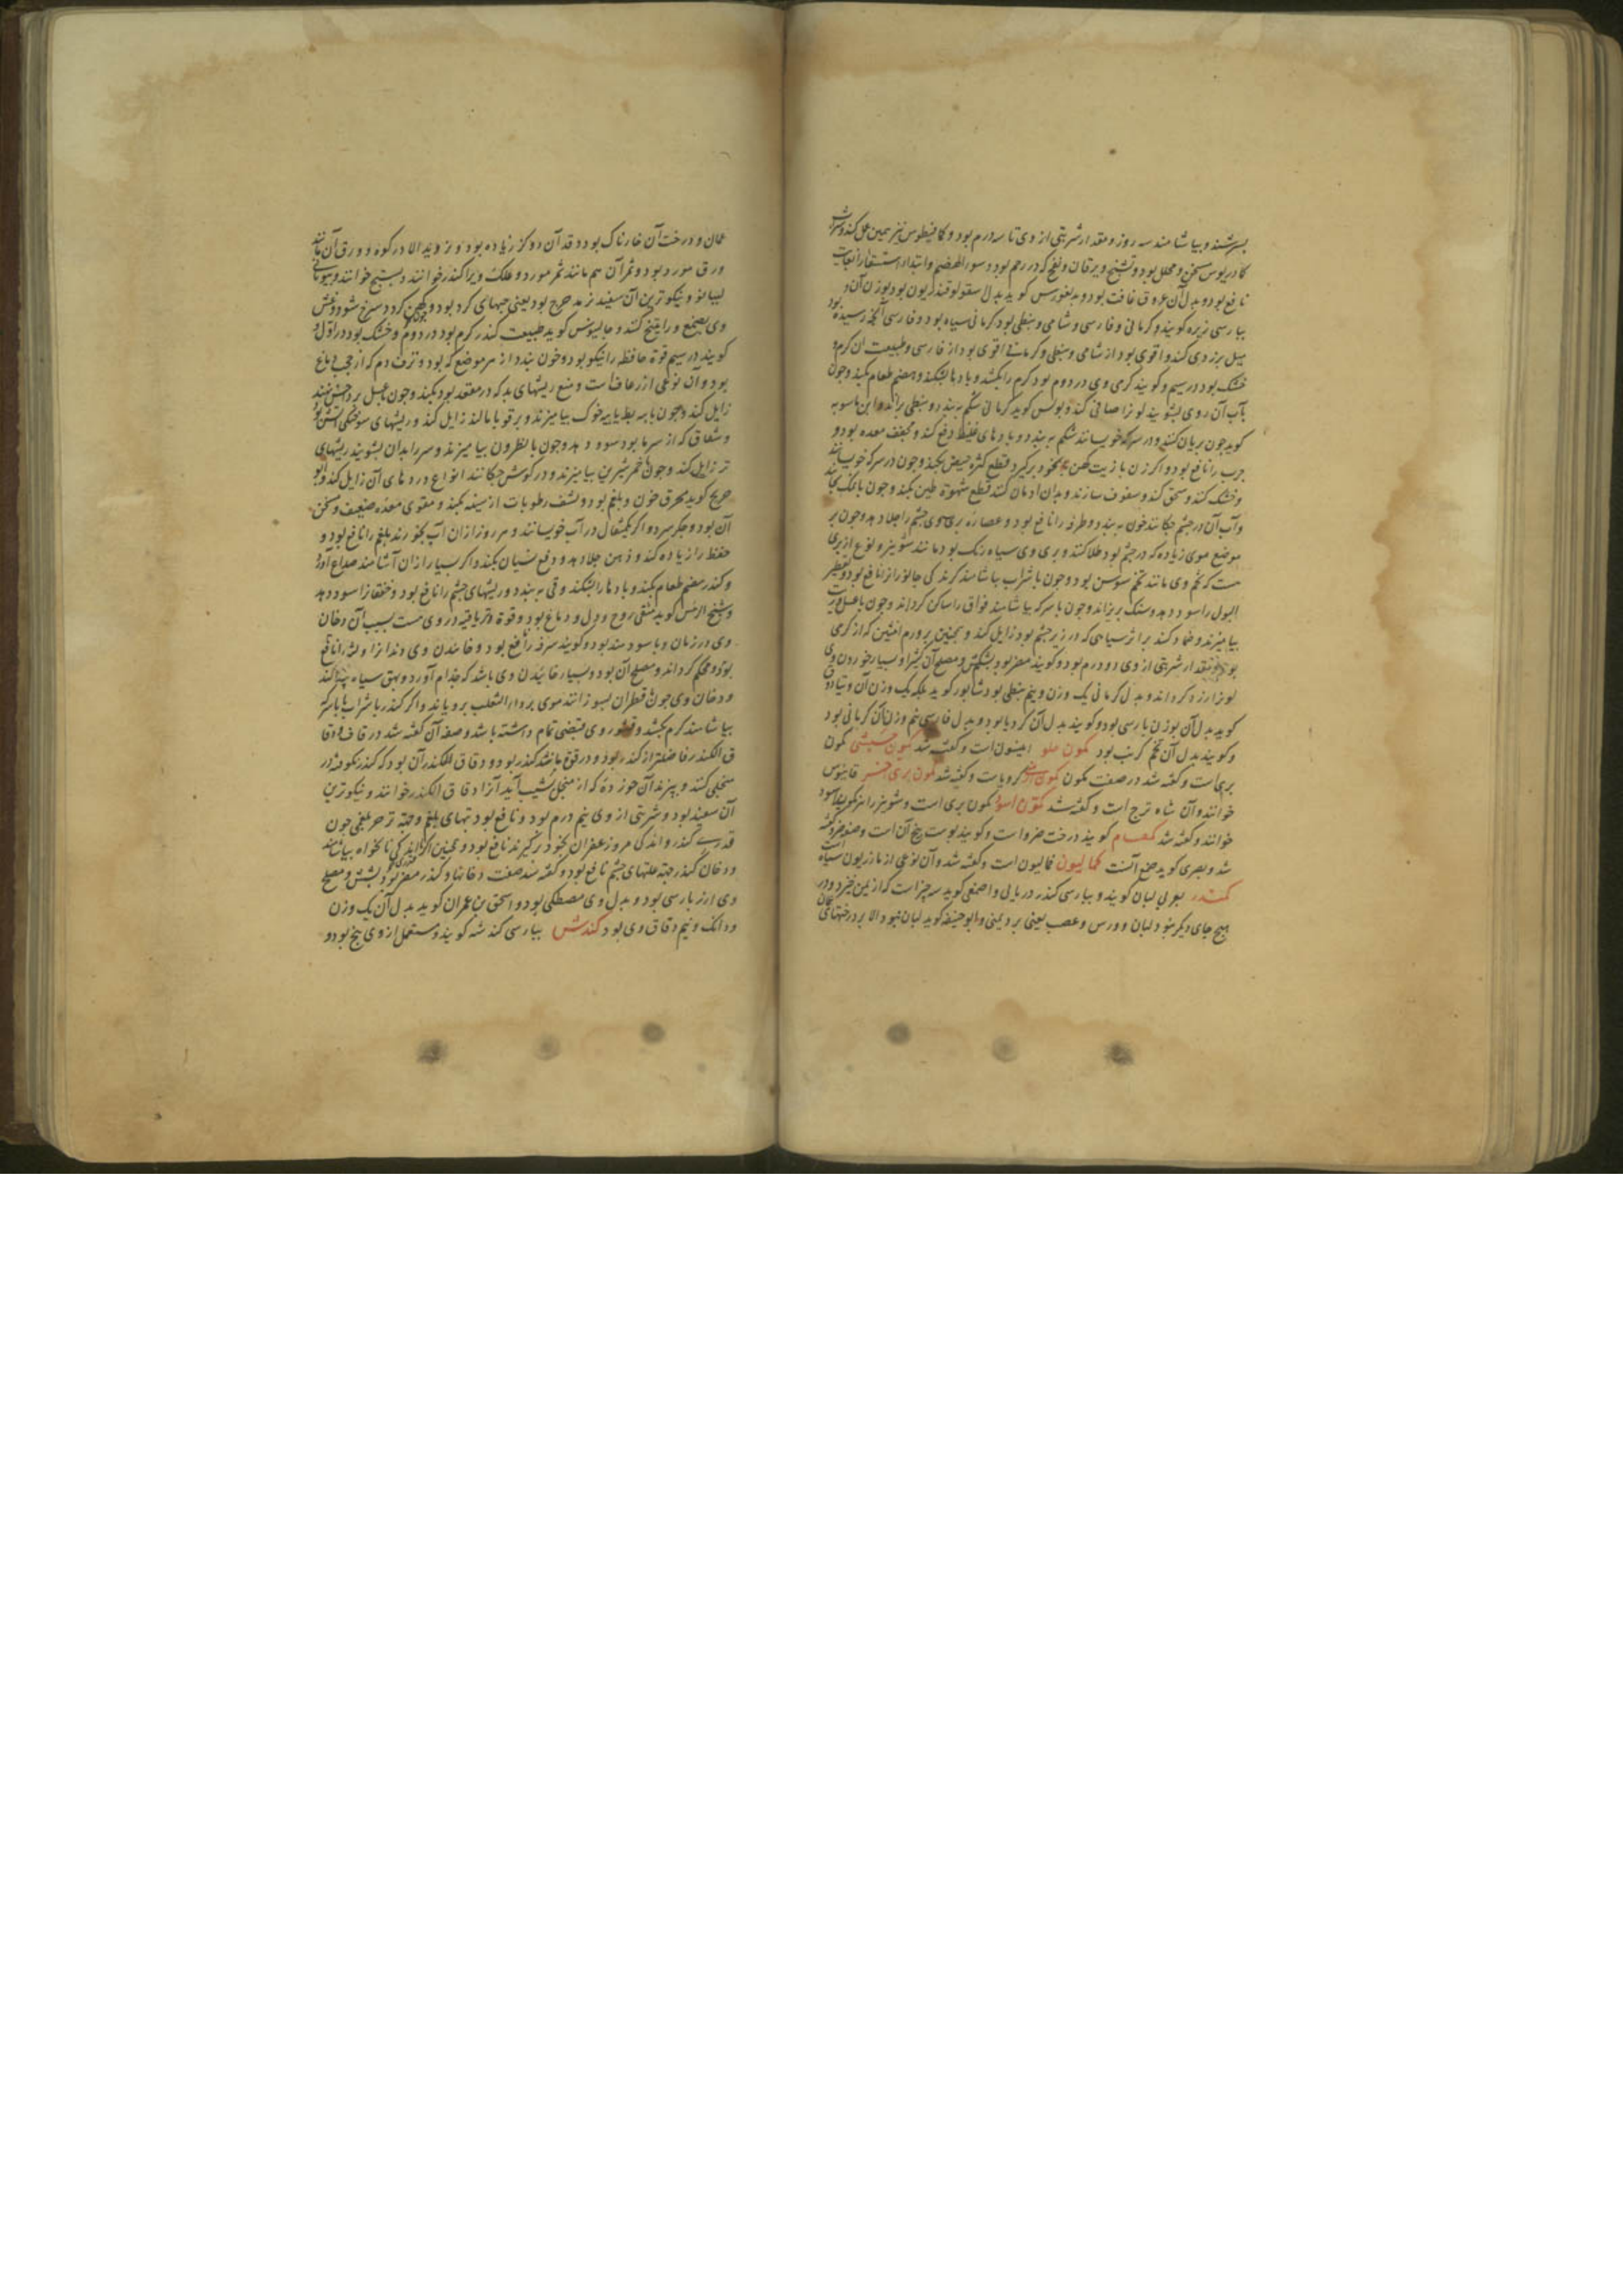 بسرشند و بیاشامند سه روز و مقدار شربتی از وی تا سه درم بود و کمافیطوس نیز همین عمل کند
کمادریوس مسخن و محلل بود و تشنج و یرقان و نفخ که در رحم بود و سوء الهضم و ابتداء استسقا را
نافع بود و بدل آن عروق غافت بود و بدیغورس کوید بدل سقولوقندریون بود بوزن آن
بپارسی زیره کویند و کرمانی و فارسی و شامی و نبطی بود کرمانی سیاه بود و فارسی
میل بزردی کند و اقوی بود از شامی و نبطی و کرمانی اقوی بود از فارسی و طبیعت آن کرم و
خشک بود در سیم و کویند کرمی وی در دوم بود کرم را بکشد و بادها بشکند و هضم طعام بکند و چون
بآب آن روی بشویند لون را صافی کند و بولس کوید کرمانی شکم ببندد و نبطی براند و ابن ماسویه
کوید چون بریان کنند و در سرکه خویسانند شکم ببندد و بادهای غلیظ دفع کند و مجفف معده بود و
جرب را نافع بود و اکر زن با زیت کهن بخود برکیرد قطع کثره حیض بکند و چون در سرکه خویسانند
و خشک کنند و سحق کنند و سفوف سازند و بدان ادمان کنند قطع شهوة طین بکند و چون با نمک بخایند
و آب آن در چشم چکانند خون ببندد و طرفه را نافع بود و عصاره بری وی چشم را جلا دهد و چون بر
موضع موی زیاده که در چشم بود طلا کنند و بری وی سیاه رنک بود مانند شونیز و نوع از بری
هست که تخم وی مانند تخم سوسن بود و چون با شراب بیاشامند کزندکی جانوران را نافع بود و تقطیر
البول را سود دهد و سنک بریزاند و چون با سرکه بیاشامند فواق را ساکن کرداند و چون با عسل
بیامیزند و ضماد کنند بر اثر سیاهی که در زیر چشم بود زایل کند و همچنین بر ورم انثیین که از کرمی
بود و مقدار شربتی از وی دو درم بود و کویند مضر بود بشش و مصلح آن کتیرا و بسیار خوردن وی
لون را زرد کرداند و بدل کرمانی یک وزن و نیم نبطی بود شابور کوید بلکه یک وزن آن و
کوید بدل آن بوزن پارسی بود و کویند بدل آن کرویا بود و بدل فارسی نیم وزن آن کرمانی بود
و کویند بدل آن تخم کرنب بود کمون حلو انیسون است و کفته شد کمون حبشی کمون
بری است و کفته شد در صفت کمون کمون ارمنی کرویا است و کفته شد کمون بری اخضر
خوانند و آن شاه ترج است و کفته شد کمون اسود کمون بری است و شونیز را نیز کمون اسود
خوانند و کفته شد کمکام کویند درخت ضرو است و کویند پوست بیخ آن است و صفت ضرو کفته
شد و بصری کوید صمغ آنست کمالیون خمالیون است و کفته شد و آن نوعی از مازریون سیاه است
کندر بعربی لبان کویند و بپارسی کندر دریایی و اصمعی کوید سه چیز است که از یمن خیزد و در
هیچ جای دیکر نبود لبان و ورس و عصب یعنی برد یمنی و ابو حنیفه کوید لبان نبود الا بر درختهای
عمان و درخت آن خارناک بود و قد آن دو کز زیاده بود و نروید الا در کوه و ورق آن مانند
ورق مورد بود و ثمر آن هم مانند ثمر مورد و علک ویرا کندر خوانند و بستج خوانند و بیونانی
لیبانو و نیکوترین آن سفید مدحرج بود یعنی حبهای کرد بود و چون کهن کردد سرخ شود و غش
وی بصمغ و راتینج کنند و جالینوس کوید طبیعت کندر کرم بود در دوم و خشک بود در اول و
کویند در سیم قوة حافظه را نیکو بود و خون ببندد از هر موضع که بود و نزف دم که از حجب دماغ
بود و آن نوعی از رعاف است و منع ریشهای بد که در مقعد بود بکند و چون با عسل بر داحس نهند
زایل کند و چون با پیه بط یا پیه خوک بیامیزند و بر قوبا مالند زایل کند و ریشهای سوختکی آتش
و شقاق که از سرما بود سود دهد و چون با نطرون بیامیزند و سر را بدان بشویند ریشهای
تر زایل کند و چون با خمر شیرین بیامیزند و در کوش چکانند انواع دردهای آن زایل کند و ابو
جریج کوید محرق خون و بلغم بود و نشف رطوبات از سینه بکند و مقوی معده ضعیف و مسخن
آن بود و جکر سرد و اکر یکمثقال در آب خویسانند و هر روز از آن آب بخورند بلغم را نافع بود و
حفظ را زیاده کند و ذهن جلا دهد و دفع نسیان بکند و اکر بسیار از آن آشامند صداع آورد
و کندر هضم طعام بکند و بادها را بشکند و قی ببندد و ریشهای چشم را نافع بود و خفقان را سود دهد
و شیخ الرئیس کوید مقوی روح و دل و دماغ بود و قوة تریاقیه در وی هست بسبب آن دخان
وی در زمان وبا سودمند بود و کویند سرفه را نافع بود و خائیدن وی دندان را و لثه را نافع
بود و محکم کرداند و مصلح آن بود و بسیار خائیدن وی باشد که جذام آورد و بهق سیاه پیدا کند
و دخان وی چون با قطران بسوزانند موی بر داء الثعلب برویاند و اکر کندر با شراب یا با سرکه
بیاشامند کرم بکشد و قشور وی قبضی تمام داشته باشد و صفه آن کفته شد در قاف و دقا
ق الکندر فاضلتر از کندر بود و در قوة مانند کندر بود و دقاق الکندر آن بود که کندر کوفته در
منخلی کنند و بپزند آن خرده که از منخل بشیب آید آنرا دقاق الکندر خوانند و نیکوترین
آن سفید بود و شربتی از وی نیم درم بود و نافع بود تبهای بلغم و جهة زحیر بلغمی چون
قدری کندر و اندکی مر و زعفران بخود برکیرند نافع بود و همچنین اکر اندکی نانخواه بیاشامند
و دخان کندر جهة علتهای چشم نافع بود و کفته شد صفت دخانها و کندر مضر بود بشش و مصلح
وی ارز پارسی بود و بدل وی مصطکی بود و اسحق بن عمران کوید بدل آن یک وزن
و دانک و نیم دقاق وی بود کندش بپارسی کندشه کویند و مستعمل از وی بیخ بود و